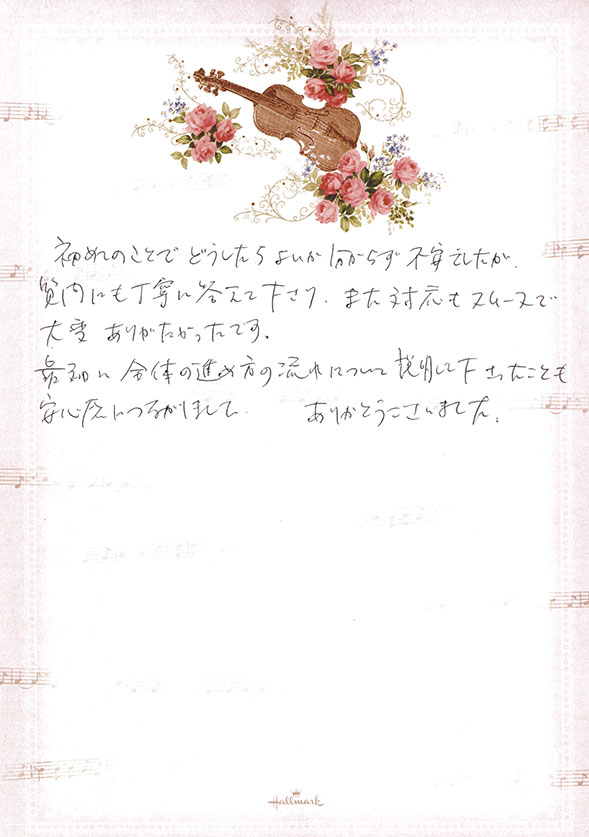 初めてのことで どうしたらよいか分からず 不安でしたが、
質問にも丁寧に答えて下さり、また対応もスムーズで
大変 ありがたかったです。
最初に 全体の進め方の流れについて説明して下さったことも
安心感につながりました。 ありがとうございました。
Hallmark